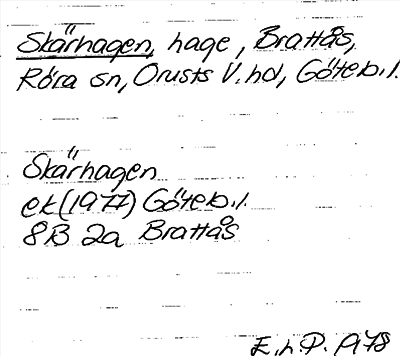 Skärhagen, hage, Brattås,
Röra sn, Orusts V. hd, Göteb. l.
Skärhagen
ek (1977) Göteb. l.
8B 2a Brattås
E. h. P. 1978